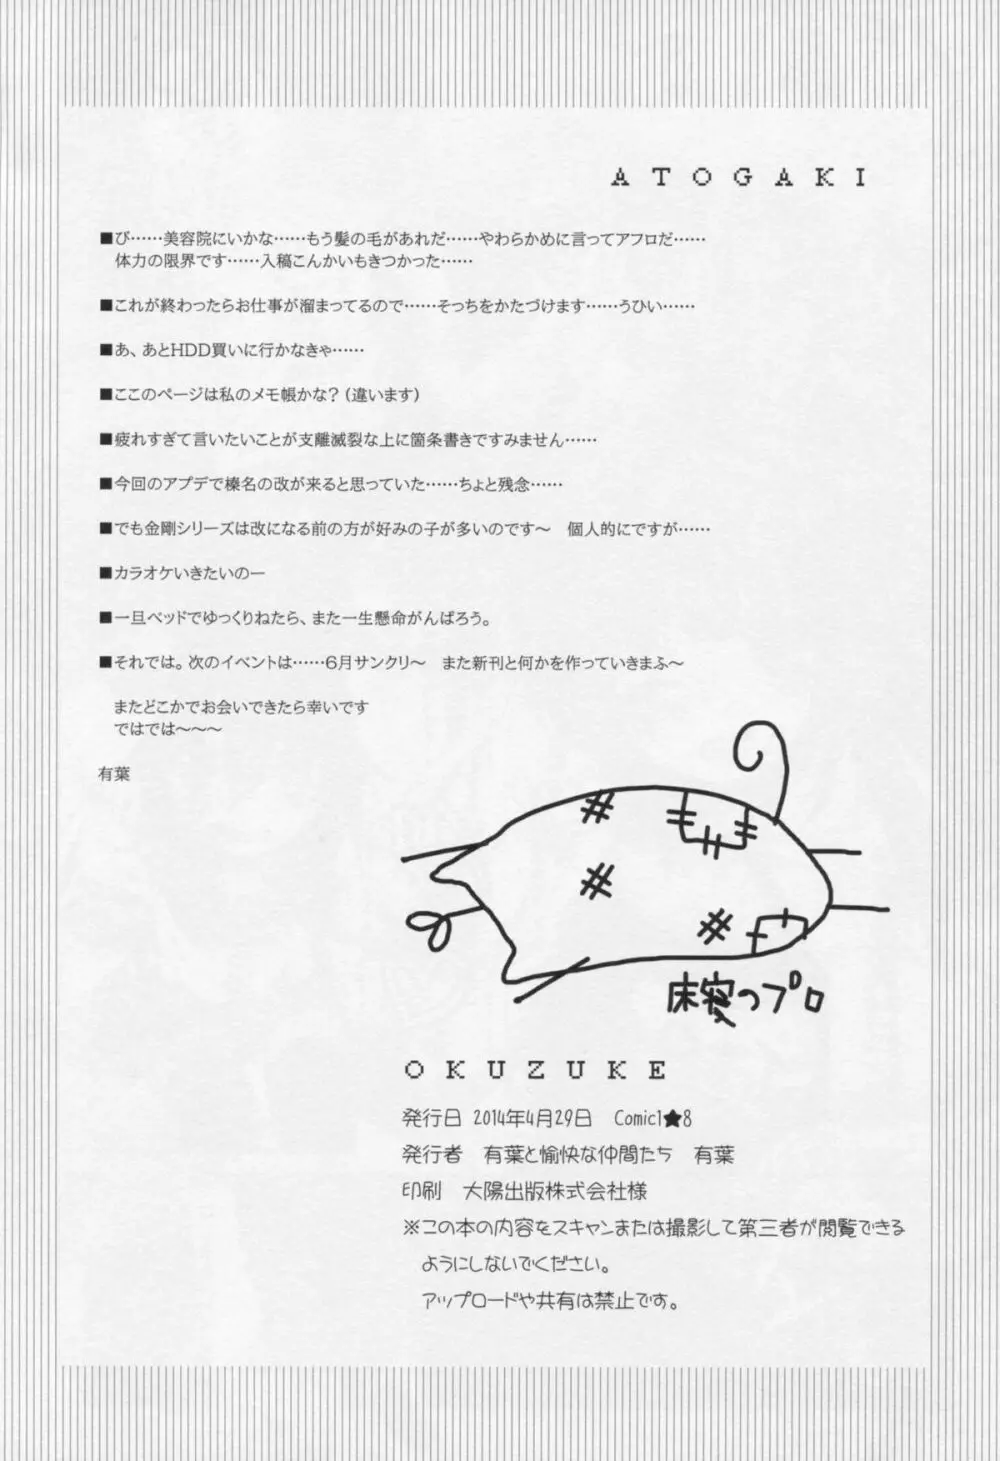 ATOGAKI
■び……美容院にいかな……もう髪の毛があれだ……やわらかめに言ってアフロだ……
体力の限界です……入稿こんかいもきつかった……
■これが終わったらお仕事が溜まってるので……そっちをかたづけます……うひい……
■あ、あとHDD買いに行かなきゃ……
■ここのページは私のメモ帳かな?(違います)
■疲れすぎて言いたいことが支離滅裂な上に箇条書きですみません……
■今回のアプデで榛名の改が来ると思っていた……ちょと残念……
■でも金剛シリーズは改になる前の方が好みの子が多いのです～　個人的にですが……
■カラオケいきたいのー
■一旦ベッドでゆっくりねたら、また一生懸命がんばろう。
■それでは。次のイベントは……6月サンクリ～　また新刊と何かを作っていきまふ～
またどこかでお会いできたら幸いです
ではでは～～～
有葉
床寝のプロ
OKUZUKE
発行日 2014年4月29日　Comic1★8
発行者　有葉と愉快な仲間たち　有葉
印刷　大陽出版株式会社様
※この本の内容をスキャンまたは撮影して第三者が閲覧できる
ようにしないでください。
アップロードや共有は禁止です。